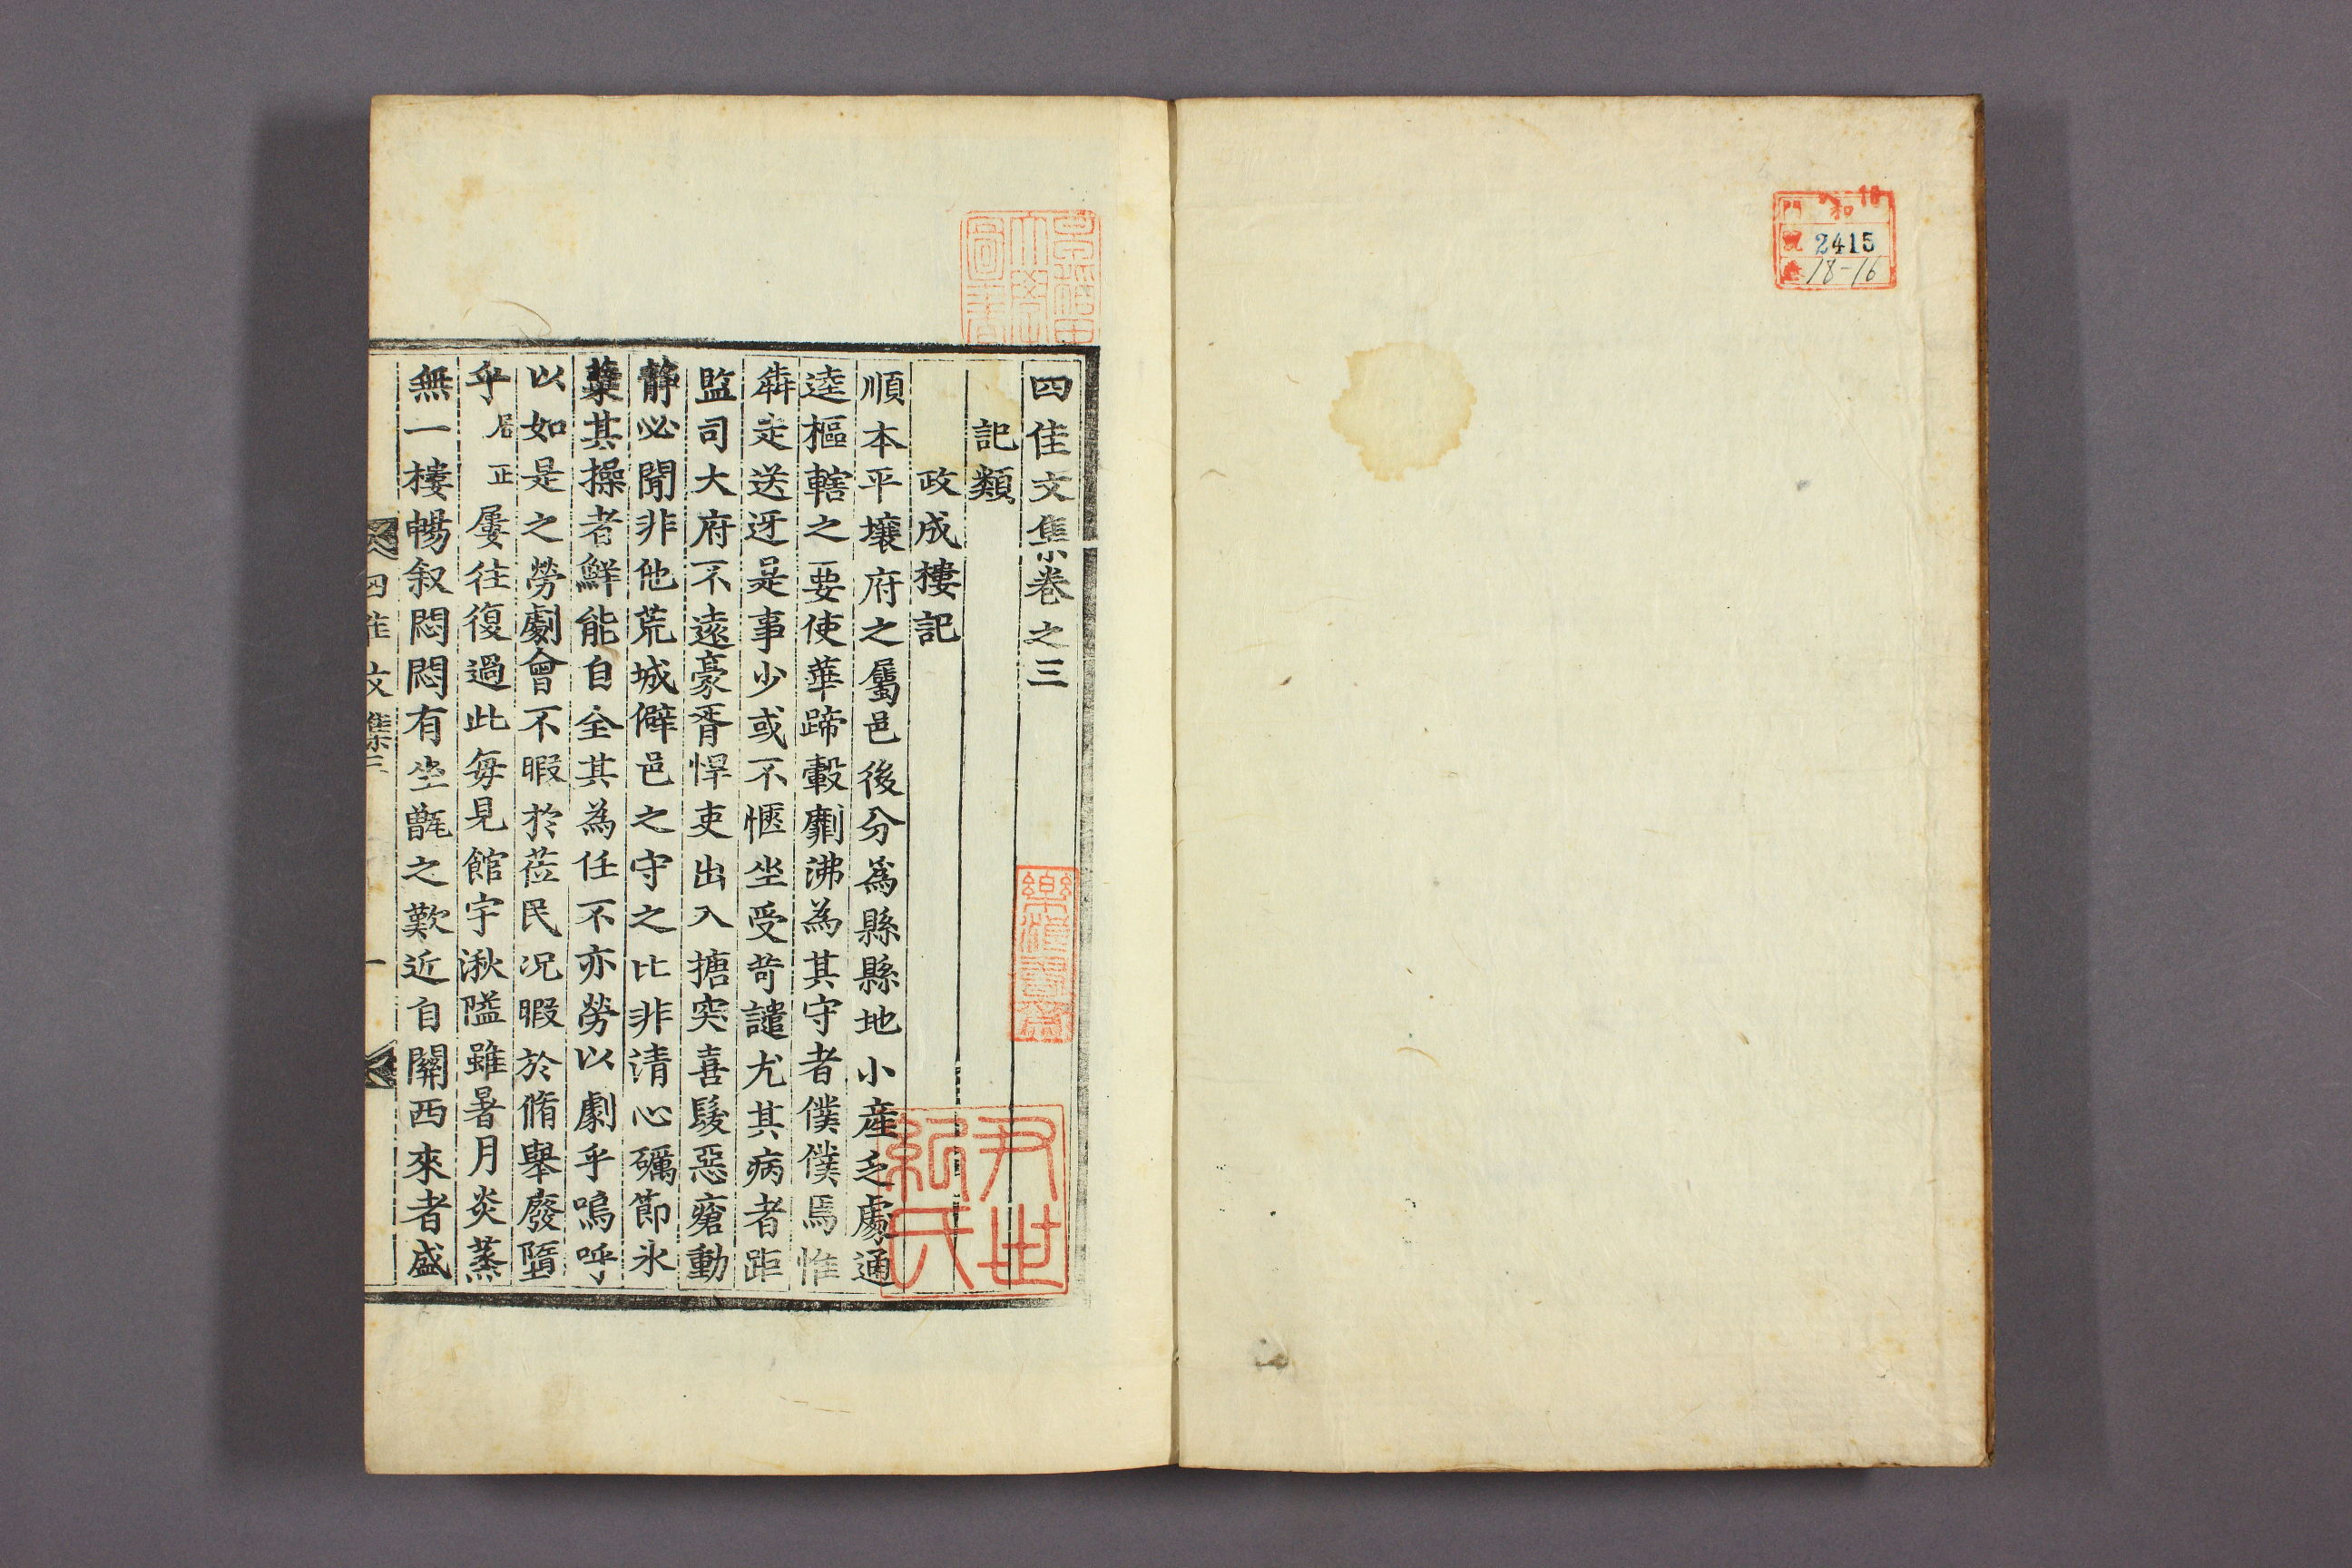 和
門
號 2415
卷 18-16
早稻田
大學
圖書
四佳文集卷之三
記類
政成樓記
順本平壤府之屬邑後分爲縣縣地小產乏處通
逵樞轄之要使華蹄轂劘沸為其守者僕僕焉惟
犇走送迓是事少或不愜坐受苛譴尤其病者距
監司大府不遠豪胥悍吏出入搪突喜髮惡瘡動
靜必聞非他荒城僻邑之守之比非清心礪節氷
蘖其操者鮮能自全其為任不亦勞以劇乎嗚呼
以如是之勞劇會不暇於莅民况暇於脩舉廢墮
乎居正屢往復過此每見館宇湫隘雖暑月炎蒸
無一樓暢叙悶悶有坐甑之歎近自關西來者盛
四佳文集三 一
尹世
氏